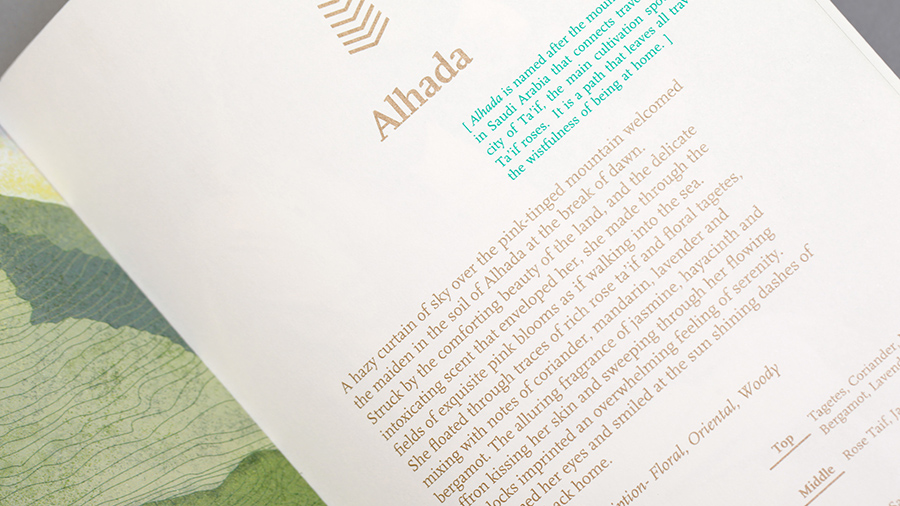 Alhada
[ Alhada is named after the
in Saudi Arabia that connects
city of Ta'if, the main cultivation
Ta'if roses. It is a path that leaves all
the wistfulness of being at home. ]
A hazy curtain of sky over the pink-tinged mountain welcomed
the maiden in the soil of Alhada at the break of dawn.
Struck by the comforting beauty of the land, and the delicate
intoxicating scent that enveloped her, she made through the
fields of exquisite pink blooms as if walking into the sea.
She floated through traces of rich rose ta'if and floral tagetes,
mixing with notes of coriander, mandarin, lavender and
bergamot. The alluring fragrance of jasmine, hayacinth and
ffron kissing her skin and sweeping through her flowing
locks imprinted an overwhelming feeling of serenity.
ned her eyes and smiled at the sun shining dashes of
ack home.
Floral, Oriental, Woody
Top
Tagetes, Coriander,
Bergamot,
Middle
Rose Taif,